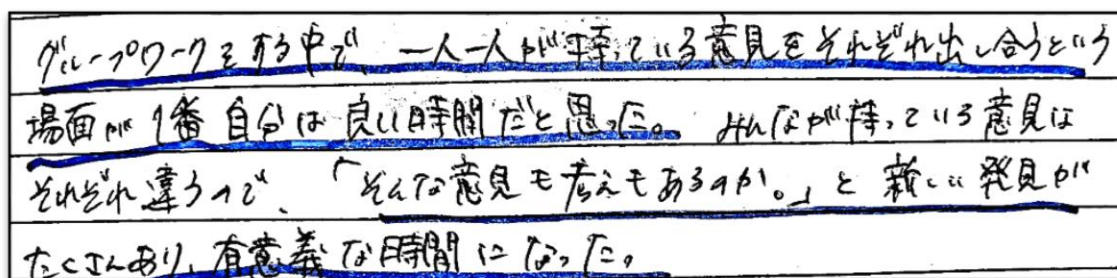 グループワークをする中で、一人一人が持っている意見をそれぞれ出し合うという
場面が1番自分は良い時間だと思った。みんなが持っている意見は
それぞれ違うので、「そんな意見も考えもあるのか。」と新しい発見が
たくさんあり、有意義な時間になった。